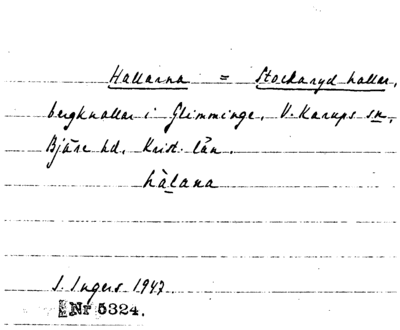 Hallarna = Stockaryd hallar,
bergknallar i Glimminge, V. Karups sn,
Bjäre hd, Krist. län.
hàlana
I. Ingers 1947.
Nr 5324.